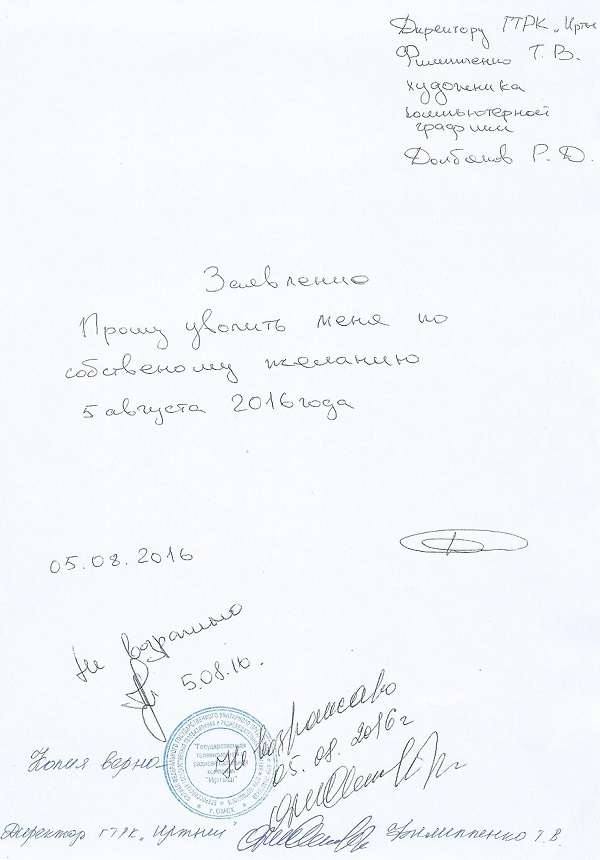 Директору ГТРК „Ирты
Филиппенко Т. В.
художника
компьютерной
графики
Долбаков Р. Д.
Заявление
Прошу уволить меня по
собственому желанию
5 августа 2016 года
05.08.2016
Не возражаю
5.08.16.
Не возражаю
05.08.2016 г
Копия верна
"Государственная
телевизионная
радиовещательная
компания
"Иртыш"
г. ОМСК
Директор ГТРК „Иртыш" Филиппенко Т.В.